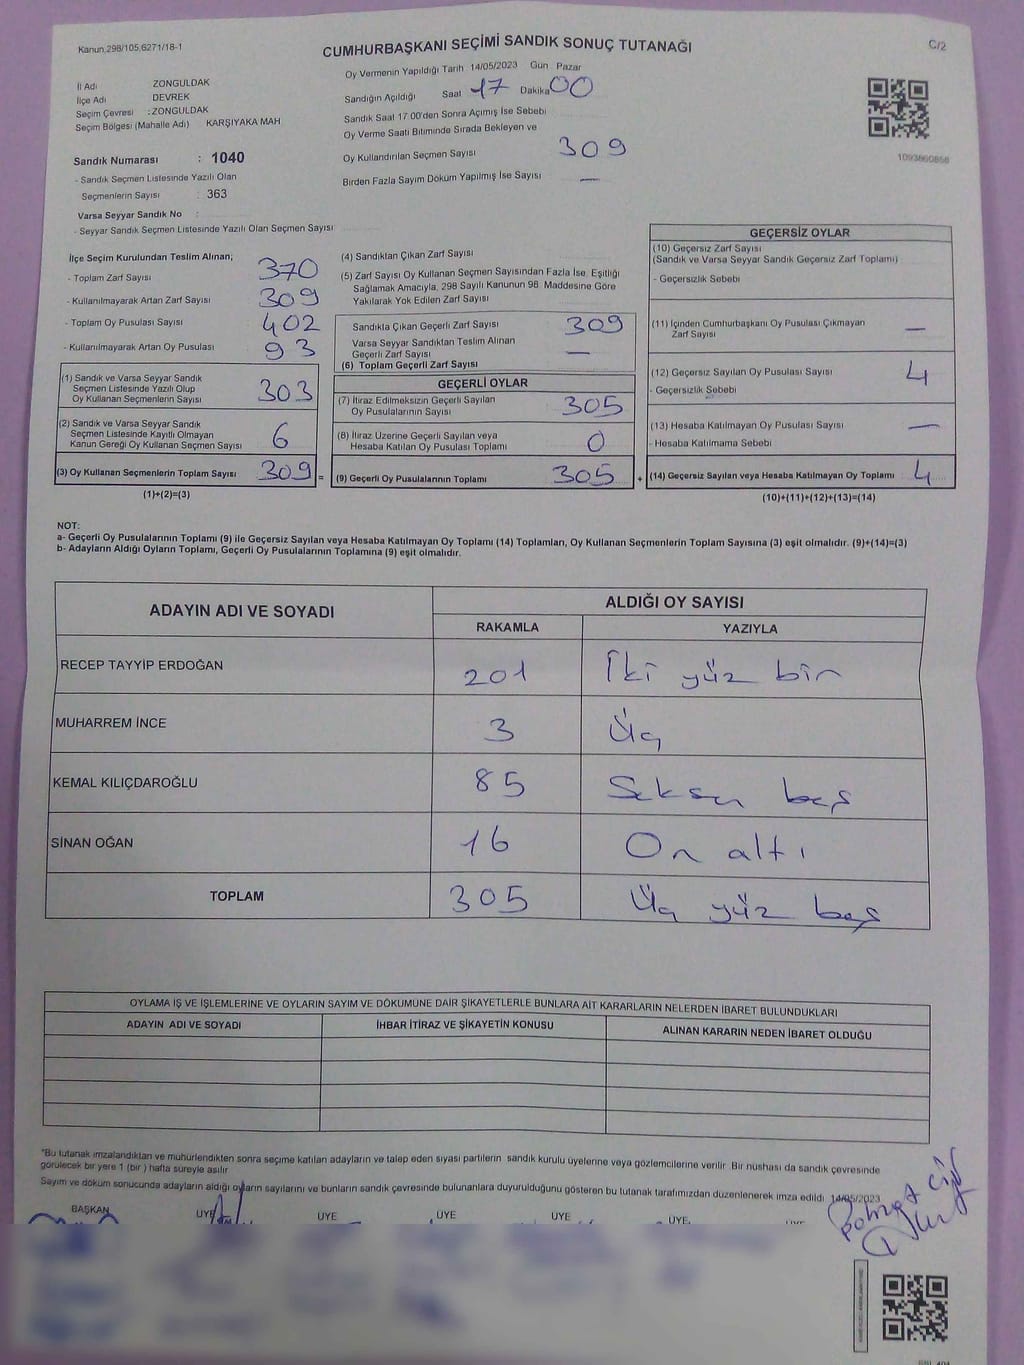 Kanun,298/105,6271/18-1
CUMHURBAŞKANI SEÇİMİ SANDIK SONUÇ TUTANAĞI
C/2
İl Adı ZONGULDAK
İlçe Adı DEVREK
Seçim Çevresi : ZONGULDAK
Seçim Bölgesi (Mahalle Adı) KARŞIYAKA MAH
Sandık Numarası : 1040
- Sandık Seçmen Listesinde Yazılı Olan
Seçmenlerin Sayısı : 363
Varsa Seyyar Sandık No :
- Seyyar Sandık Seçmen Listesinde Yazılı Olan Seçmen Sayısı
Oy Vermenin Yapıldığı Tarih 14/05/2023 Gün Pazar
Sandığın Açıldığı Saat 17 Dakika 00
Sandık Saat 17.00'den Sonra Açımış İse Sebebi
Oy Verme Saati Bitiminde Sırada Bekleyen ve
Oy Kullandırılan Seçmen Sayısı 309
Birden Fazla Sayım Döküm Yapılmış İse Sayısı —
1093860858
İlçe Seçim Kurulundan Teslim Alınan;
- Toplam Zarf Sayısı 370
- Kullanılmayarak Artan Zarf Sayısı 309
- Toplam Oy Pusulası Sayısı 402
- Kullanılmayarak Artan Oy Pusulası 93
(1) Sandık ve Varsa Seyyar Sandık
Seçmen Listesinde Yazılı Olup
Oy Kullanan Seçmenlerin Sayısı 303
(2) Sandık ve Varsa Seyyar Sandık
Seçmen Listesinde Kayıtlı Olmayan
Kanun Gereği Oy Kullanan Seçmen Sayısı 6
(3) Oy Kullanan Seçmenlerin Toplam Sayısı 309 =
(1)+(2)=(3)
(4) Sandıktan Çıkan Zarf Sayısı
(5) Zarf Sayısı Oy Kullanan Seçmen Sayısından Fazla İse, Eşitliği
Sağlamak Amacıyla, 298 Sayılı Kanunun 98. Maddesine Göre
Yakılarak Yok Edilen Zarf Sayısı
Sandıkla Çıkan Geçerli Zarf Sayısı 309
Varsa Seyyar Sandıktan Teslim Alınan
Geçerli Zarf Sayısı —
(6) Toplam Geçerli Zarf Sayısı
GEÇERLİ OYLAR
(7) İtiraz Edilmeksizin Geçerli Sayılan
Oy Pusulalarının Sayısı 305
(8) İtiraz Üzerine Geçerli Sayılan veya
Hesaba Katılan Oy Pusulası Toplamı 0
(9) Geçerli Oy Pusulalarının Toplamı 305 +
GEÇERSİZ OYLAR
(10) Geçersiz Zarf Sayısı
(Sandık ve Varsa Seyyar Sandık Geçersiz Zarf Toplamı)
- Geçersizlik Sebebi
(11) İçinden Cumhurbaşkanı Oy Pusulası Çıkmayan
Zarf Sayısı —
(12) Geçersiz Sayılan Oy Pusulası Sayısı 4
- Geçersizlik Sebebi
(13) Hesaba Katılmayan Oy Pusulası Sayısı —
- Hesaba Katılmama Sebebi
(14) Geçersiz Sayılan veya Hesaba Katılmayan Oy Toplamı 4
(10)+(11)+(12)+(13)=(14)
NOT:
a- Geçerli Oy Pusulalarının Toplamı (9) ile Geçersiz Sayılan veya Hesaba Katılmayan Oy Toplamı (14) Toplamları, Oy Kullanan Seçmenlerin Toplam Sayısına (3) eşit olmalıdır. (9)+(14)=(3)
b- Adayların Aldığı Oyların Toplamı, Geçerli Oy Pusulalarının Toplamına (9) eşit olmalıdır.
ADAYIN ADI VE SOYADI ALDIĞI OY SAYISI
RAKAMLA YAZIYLA
RECEP TAYYİP ERDOĞAN 201 İki yüz bir
MUHARREM İNCE 3 Üç
KEMAL KILIÇDAROĞLU 85 Seksen beş
SİNAN OĞAN 16 On altı
TOPLAM 305 Üç yüz beş
OYLAMA İŞ VE İŞLEMLERİNE VE OYLARIN SAYIM VE DÖKÜMÜNE DAİR ŞİKAYETLERLE BUNLARA AİT KARARLARIN NELERDEN İBARET BULUNDUKLARI
ADAYIN ADI VE SOYADI İHBAR İTİRAZ VE ŞİKAYETİN KONUSU ALINAN KARARIN NEDEN İBARET OLDUĞU
"Bu tutanak imzalandıktan ve mühürlendikten sonra seçime katılan adayların ve talep eden siyasi partilerin sandık kurulu üyelerine veya gözlemcilerine verilir. Bir nüshası da sandık çevresinde
görülecek bir yere 1 (bir) hafta süreyle asılır
Sayım ve döküm sonucunda adayların aldığı oyların sayılarını ve bunların sandık çevresinde bulunanlara duyurulduğunu gösteren bu tutanak tarafımızdan düzenlenerek imza edildi. 14/05/2023
BAŞKAN ÜYE ÜYE ÜYE ÜYE ÜYE